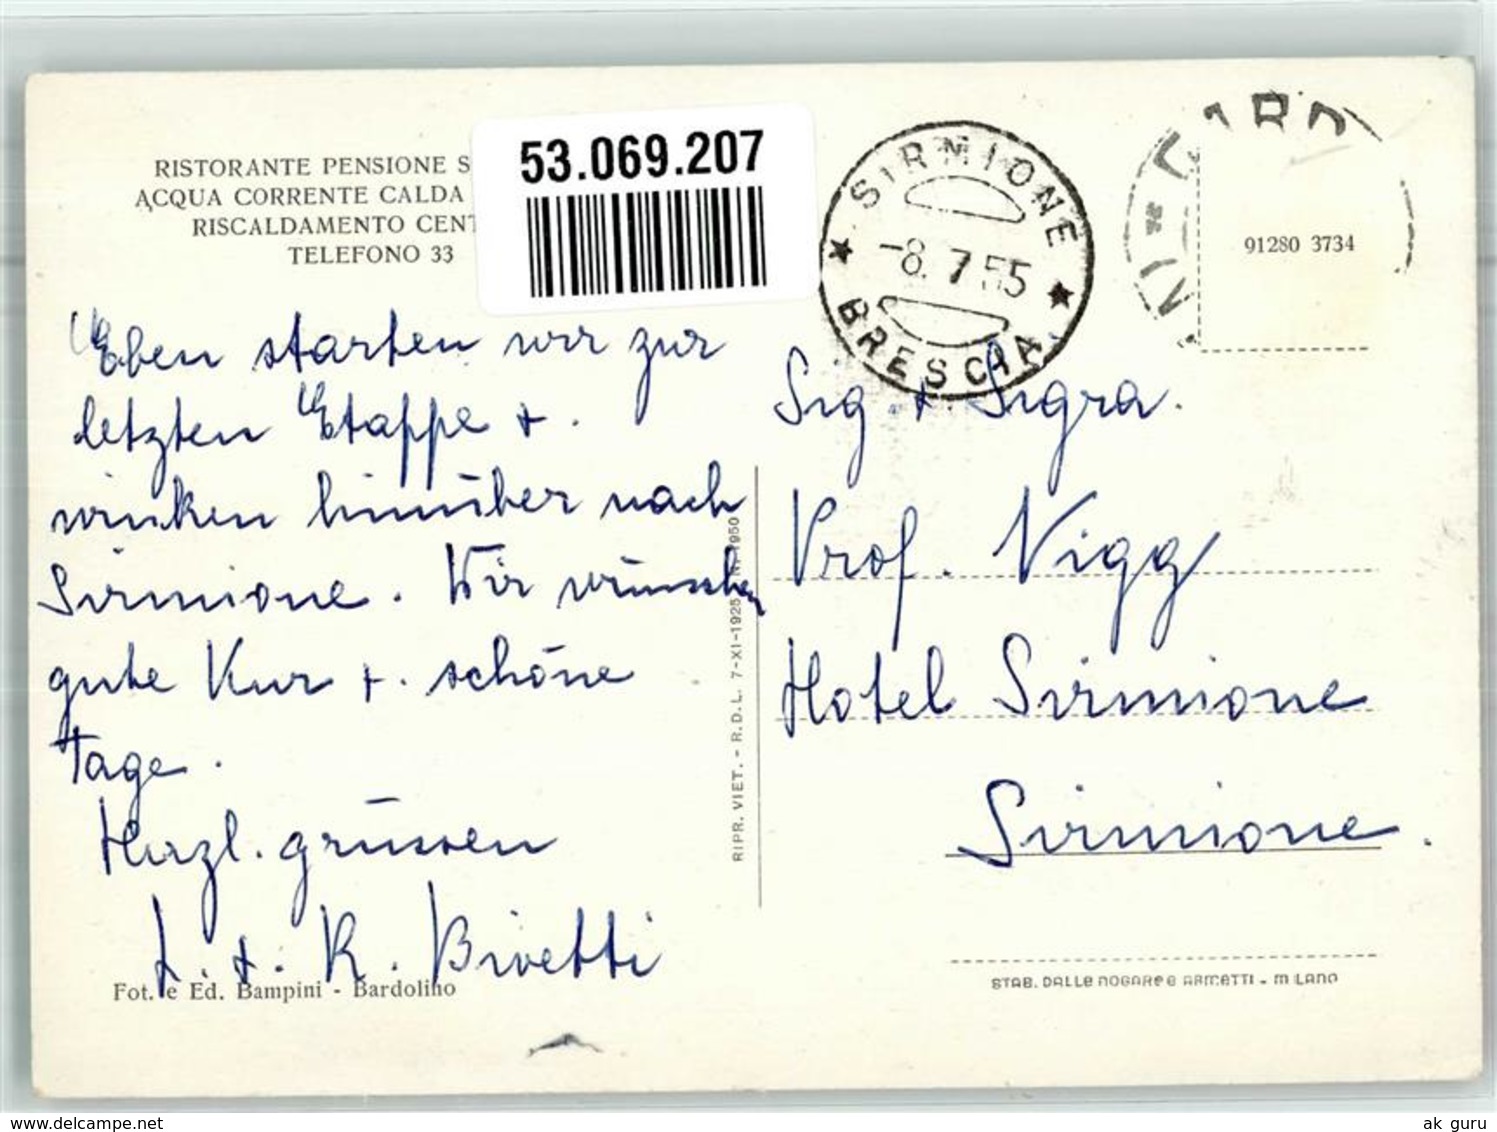 RISTORANTE PENSIONE S
ACQUA CORRENTE CALDA
RISCALDAMENTO CENT
TELEFONO 33
53.069.207
SIRMIONE
-8.7.55
BRESCIA
GARD
91280 3734
Eben starten wir zur
letzten Etappe +.
winken hinüber nach
Sirmione. Wir wünschen
gute Kur +. schöne
Tage.
Herzl. grüssen
+. R. Bivetti
Fot. e Ed. Bampini - Bardolino
RIPR. VIET. - R.D.L. 7-XI-1925 N. 1950
Sig + Sigra.
Prof. Nigg
Hotel Sirmione
Sirmione.
STAB. DALLE NOGARE e ARMETTI - MILANO
www.delcampe.net
ak guru